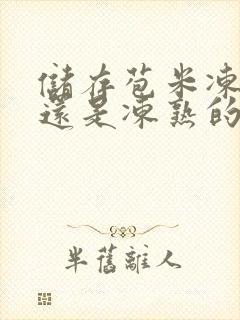 儲存苞米凍
還是凍熟的
半舊離人